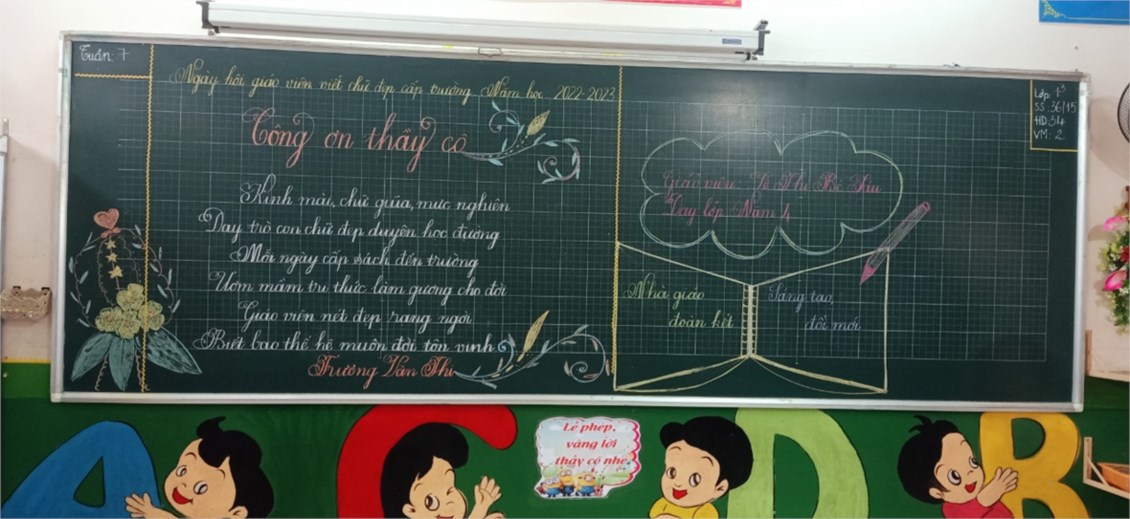 Tuần: 7
Ngày hội giáo viên viết chữ đẹp cấp trường Năm học 2022-2023
Công ơn thầy cô
Kính mài, chữ giũa, mực nghiên
Dạy trò con chữ đẹp duyên học đường
Mỗi ngày cắp sách đến trường
Ươm mầm tri thức làm gương cho đời
Giáo viên nét đẹp rạng ngời
Biết bao thế hệ muôn đời tôn vinh
Trương Văn Thi
Lớp 1
SS: 36/15
HD: 34
VM: 2
Giáo viên: Lê Thị Bé
Dạy lớp Năm 4
Nhà giáo
đoàn kết
Sáng tạo,
đổi mới
A C D B
Lễ phép,
vâng lời
thầy cô nhé.